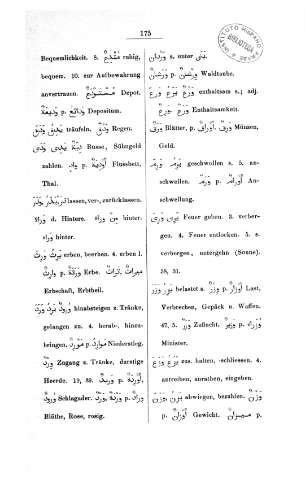 175
Bequemlichkeit. 5. متّدع ruhig,
bequem. 10. zur Aufbewahrung
anvertrauen. مستودع Depot.
وديعة p. ودائع Depositum.
ودق يدق träufeln. ودق Regen.
ودى يدى دية Busse, Sühngeld
zahlen. واد p. اودية Flussbett,
Thal.
وذر يذر lassen, ver-, zurücklassen.
وراء d. Hintere. من وراء hinter.
وراء hinter.
ورث يرث erben, beerben. 4. erben l.
وارث p. ورثة Erbe. تراث, ميراث
Erbschaft, Erbtheil.
ورد يرد ورود hinabsteigen z. Tränke,
gelangen zu. 4. herab-, hinzu-
bringen. مورد p. موارد Niederstieg.
ورد Zugang z. Tränke, durstige
Heerde. 19, 89. وريد p. اوردة
ورود Schlagader. وردة p. ورد, وراد
Blüthe, Rose, rosig.
وردان s. unter بنى.
ورشان p. ورشان Waldtaube.
ورع يرع ورع enthaltsam s.; adj.
ورع Enthaltsamkeit.
ورق Blätter, p. اوراق. ورق Münzen,
Geld.
ورم يرم geschwollen s. 5. an-
schwellen. ورم p. اورام An-
schwellung.
ورى يرى Feuer geben. 3. verber-
gen. 4. Feuer entlocken. 5. s.
verbergen, untergehn (Sonne).
38, 31.
وزر يزر belastet s. وزر p. اوزار Last,
Verbrechen, Gepäck u. Waffen.
47, 5. وزر Zuflucht. وزير p. وزراء
Minister.
وزع يزع zus. halten, -schliessen. 4.
antreiben, anrathen, eingeben.
وزن يزن وزن abwiegen, bezahlen.
وزن p. اوزان Gewicht. ميزان p.